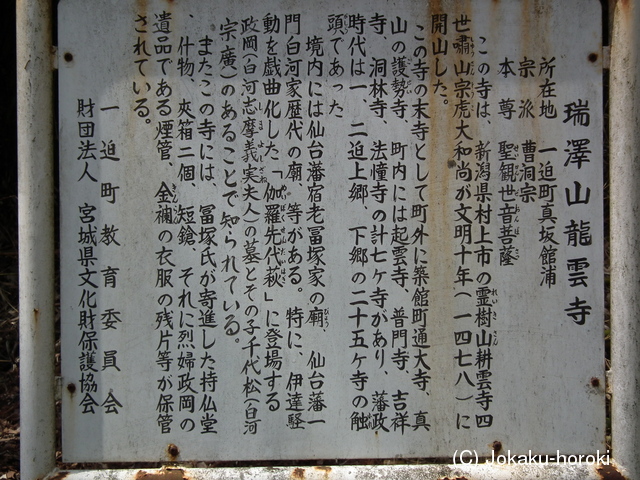 瑞澤山龍雲寺
所在地 一迫町真坂館浦
宗派 曹洞宗
本尊 聖観世音菩薩
この寺は、新潟県村上市の霊樹山耕雲寺四
世嘯山宗虎大和尚が文明十年(一四七八)に
開山した。
この寺の末寺として町外に築館町通大寺、真
山の護勢寺、町内には起雲寺、普門寺、吉祥
寺、洞林寺、法憧寺の計七ケ寺があり、藩政
時代は一、二迫上郷、下郷の二十五ケ寺の触
頭であった
境内には仙台藩宿老冨塚家の廟、仙台藩一
門白河家歴代の廟、等がある。特に、伊達騒
動を戯曲化した「伽羅先代萩」に登場する
政岡(白河志摩義実夫人)の墓とその子千代松(白河
宗廣)のあることで知られている。
またこの寺には、冨塚氏が寄進した持仏堂
、什物、夾箱二個、短鎗、それに烈婦政岡の
遺品である煙管、金襴の衣服の残片等が保管
されている。
一迫町教育委員会
財団法人 宮城県文化財保護協会
(C) Jokaku-horoki